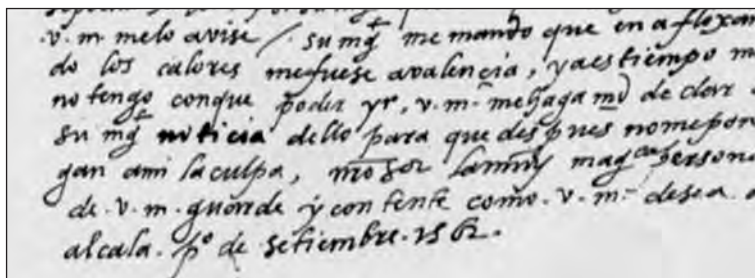 v. m. me lo avise / su mg.t me mando que en afloxan
do los calores me fuese a valencia, ya es tiempo
no tengo con que poder yr, v. m. me haga md de dar
su mg.t noticia dello para que despues no me pon
gan a mi la culpa, la muy mag.ca persona
de .v.m. guarde y contente como .v.m. desea
alcala. p.o de setiembre. 1562.